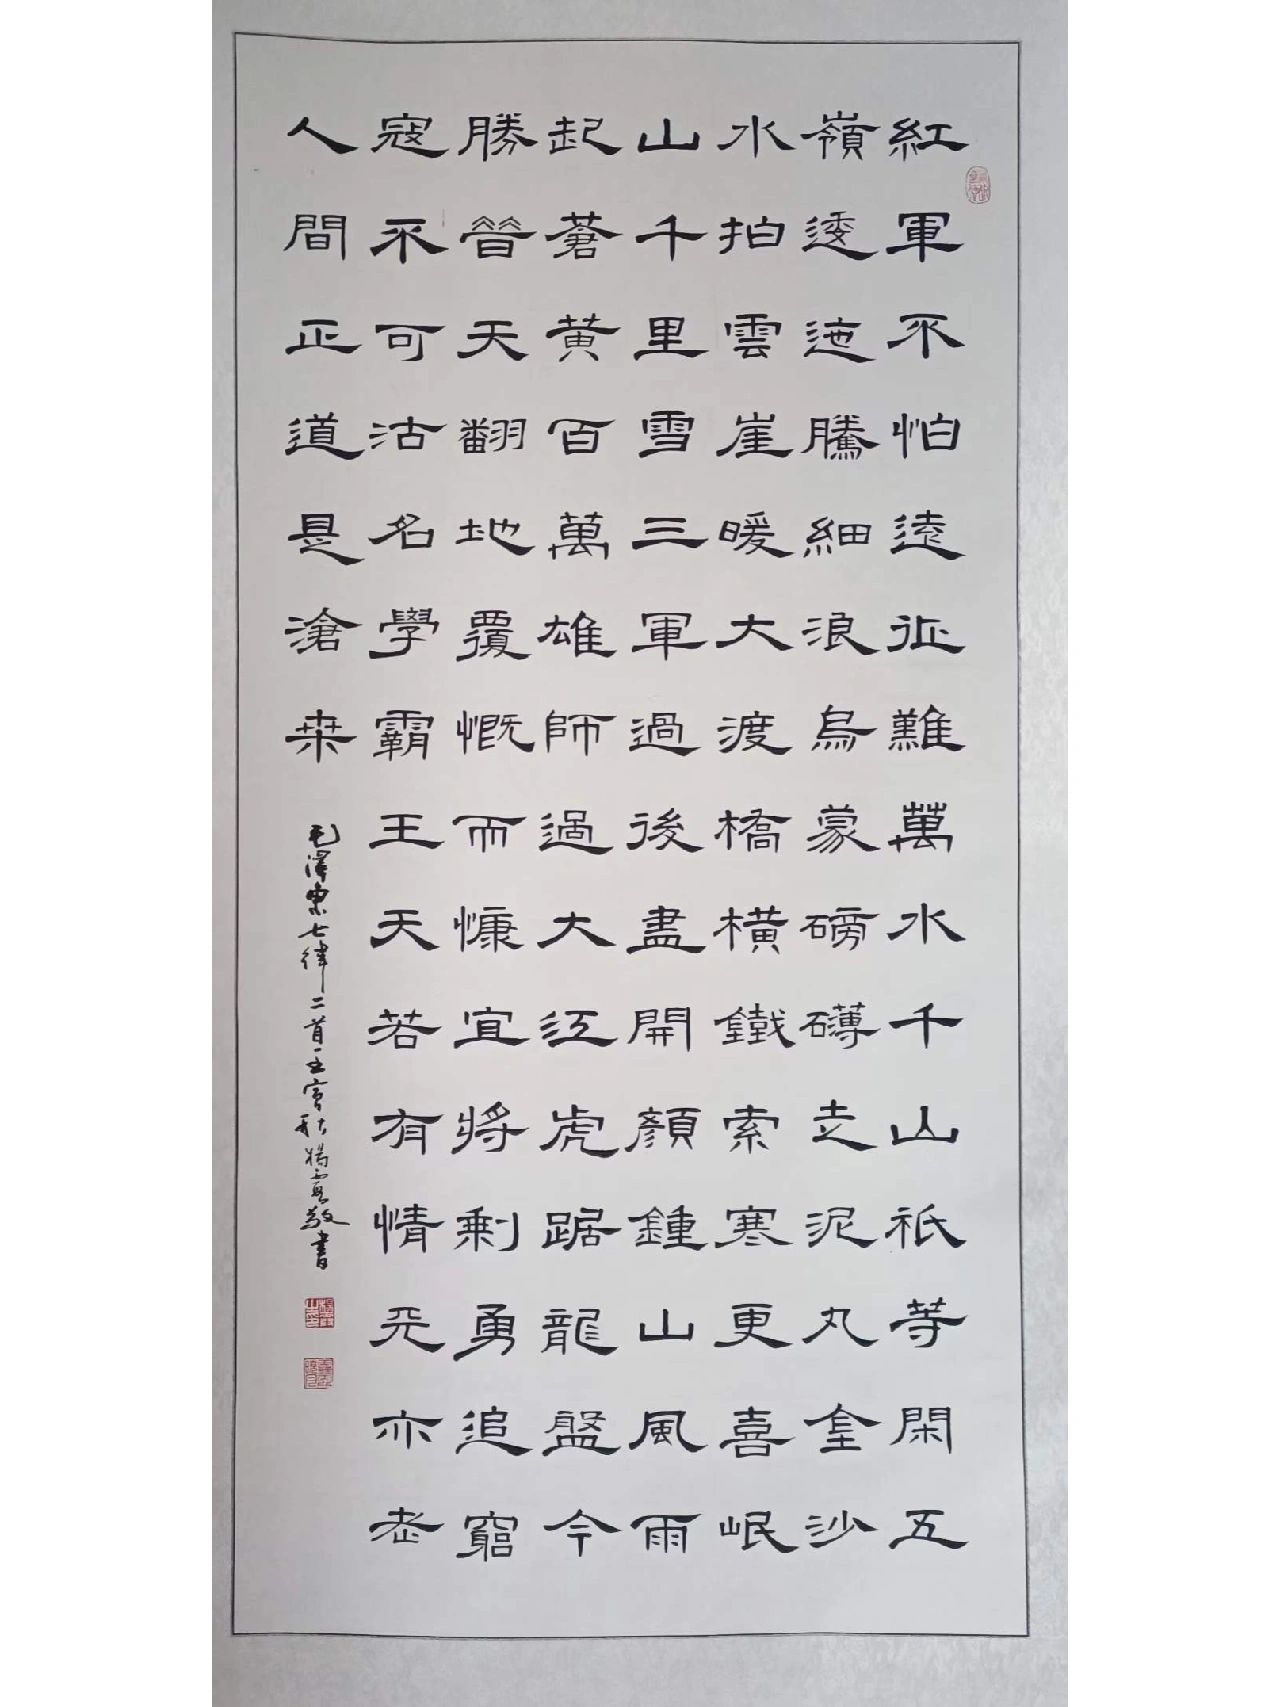 紅軍不怕遠征難萬水千山祇等閑五
嶺逶迤騰細浪烏蒙磅礴走泥丸金沙
水拍雲崖暖大渡橋橫鐵索寒更喜岷
山千里雪三軍過後盡開顏鍾山風雨
起蒼黃百萬雄師過大江虎踞龍盤今
勝昔天翻地覆慨而慷宜將剩勇追窮
寇不可沽名學霸王天若有情天亦老
人間正道是滄桒
毛澤東七律二首壬寅秋楊敬書